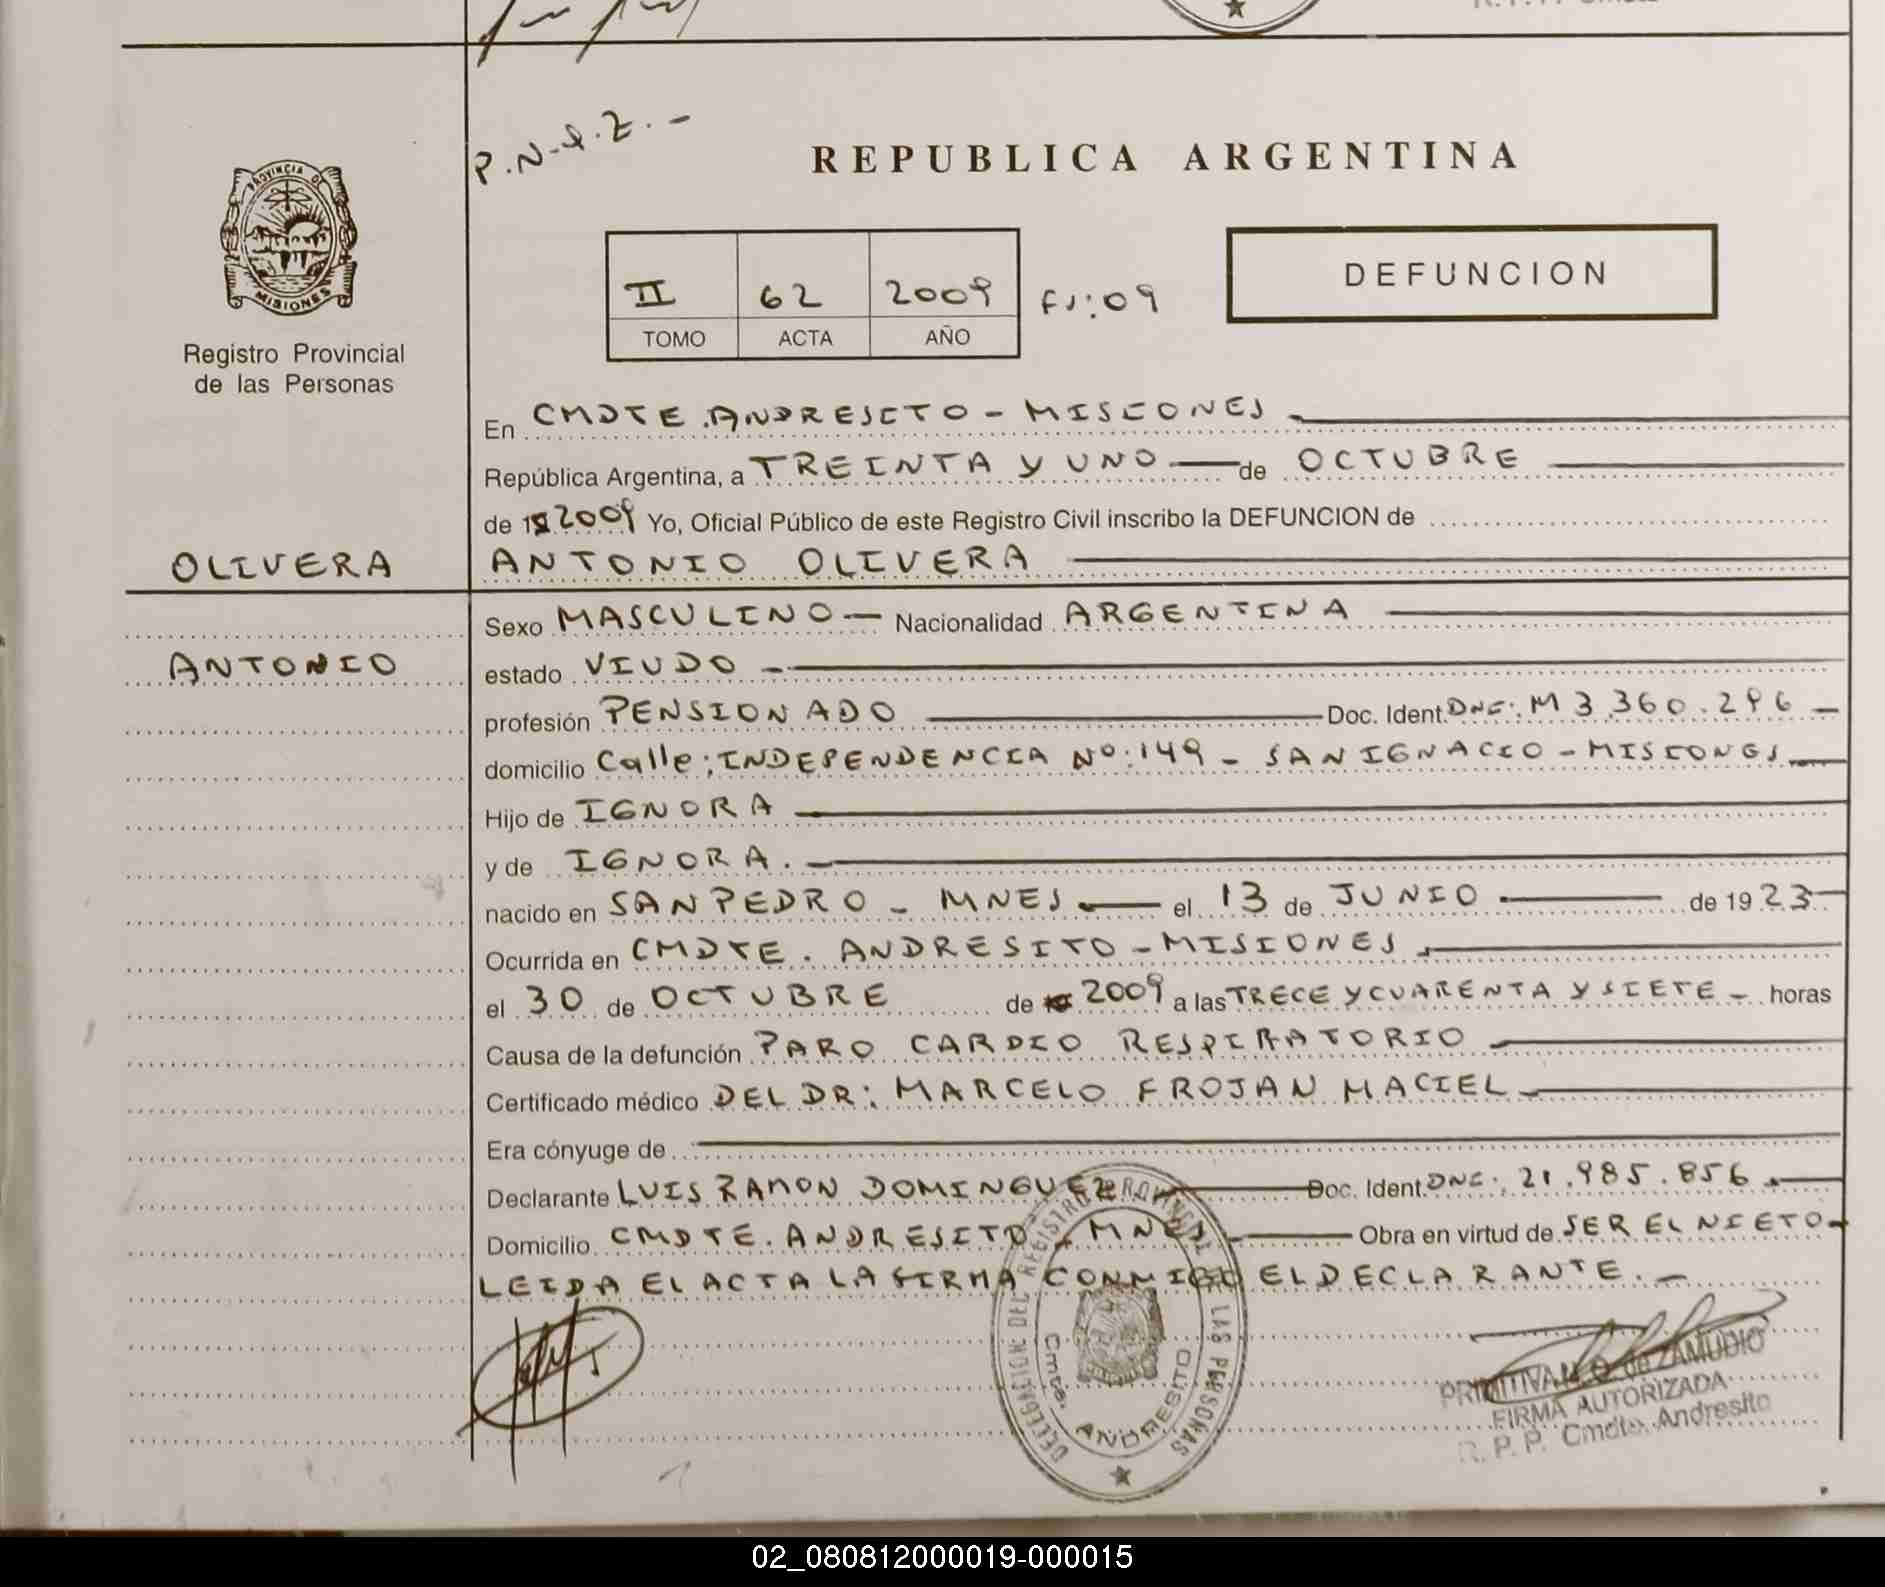 P.N.Q.Z.-
REPUBLICA ARGENTINA
PROVINCIA DE
MISIONES
Registro Provincial
de las Personas
II 62 2009 FS:09
TOMO ACTA AÑO
DEFUNCION
En CMDTE. ANDRESITO - MISIONES
República Argentina, a TREINTA Y UNO de OCTUBRE
de 19 2009 Yo, Oficial Público de este Registro Civil inscribo la DEFUNCION de
OLIVERA ANTONIO OLIVERA
Sexo MASCULINO Nacionalidad ARGENTINA
ANTONIO estado VIUDO
profesión PENSIONADO Doc. Ident. DNI: M 3.360.296
domicilio Calle: INDEPENDENCIA Nº: 149 - SAN IGNACIO - MISIONES
Hijo de IGNORA
y de IGNORA.
nacido en SAN PEDRO - MNES el 13 de JUNIO de 1923
Ocurrida en CMDTE. ANDRESITO - MISIONES
el 30 de OCTUBRE de 2009 a las TRECE Y CUARENTA Y SIETE - horas
Causa de la defunción PARO CARDIO RESPIRATORIO
Certificado médico DEL DR: MARCELO FROJAN MACIEL
Era cónyuge de
Declarante LUIS RAMON DOMINGUEZ Doc. Ident. DNI: 21.985.856
Domicilio CMDTE. ANDRESITO - MNES Obra en virtud de SER EL NIETO-
LEIDA EL ACTA LA FIRMA CONMIGO EL DECLARANTE.-
DELEGACION DEL REGISTRO PROVINCIAL DE LAS PERSONAS
Cmte. ANDRESITO
PRIMITIVA de ZAMUDIO
FIRMA AUTORIZADA
R. P. P. Cmdte. Andresito
02_080812000019-000015